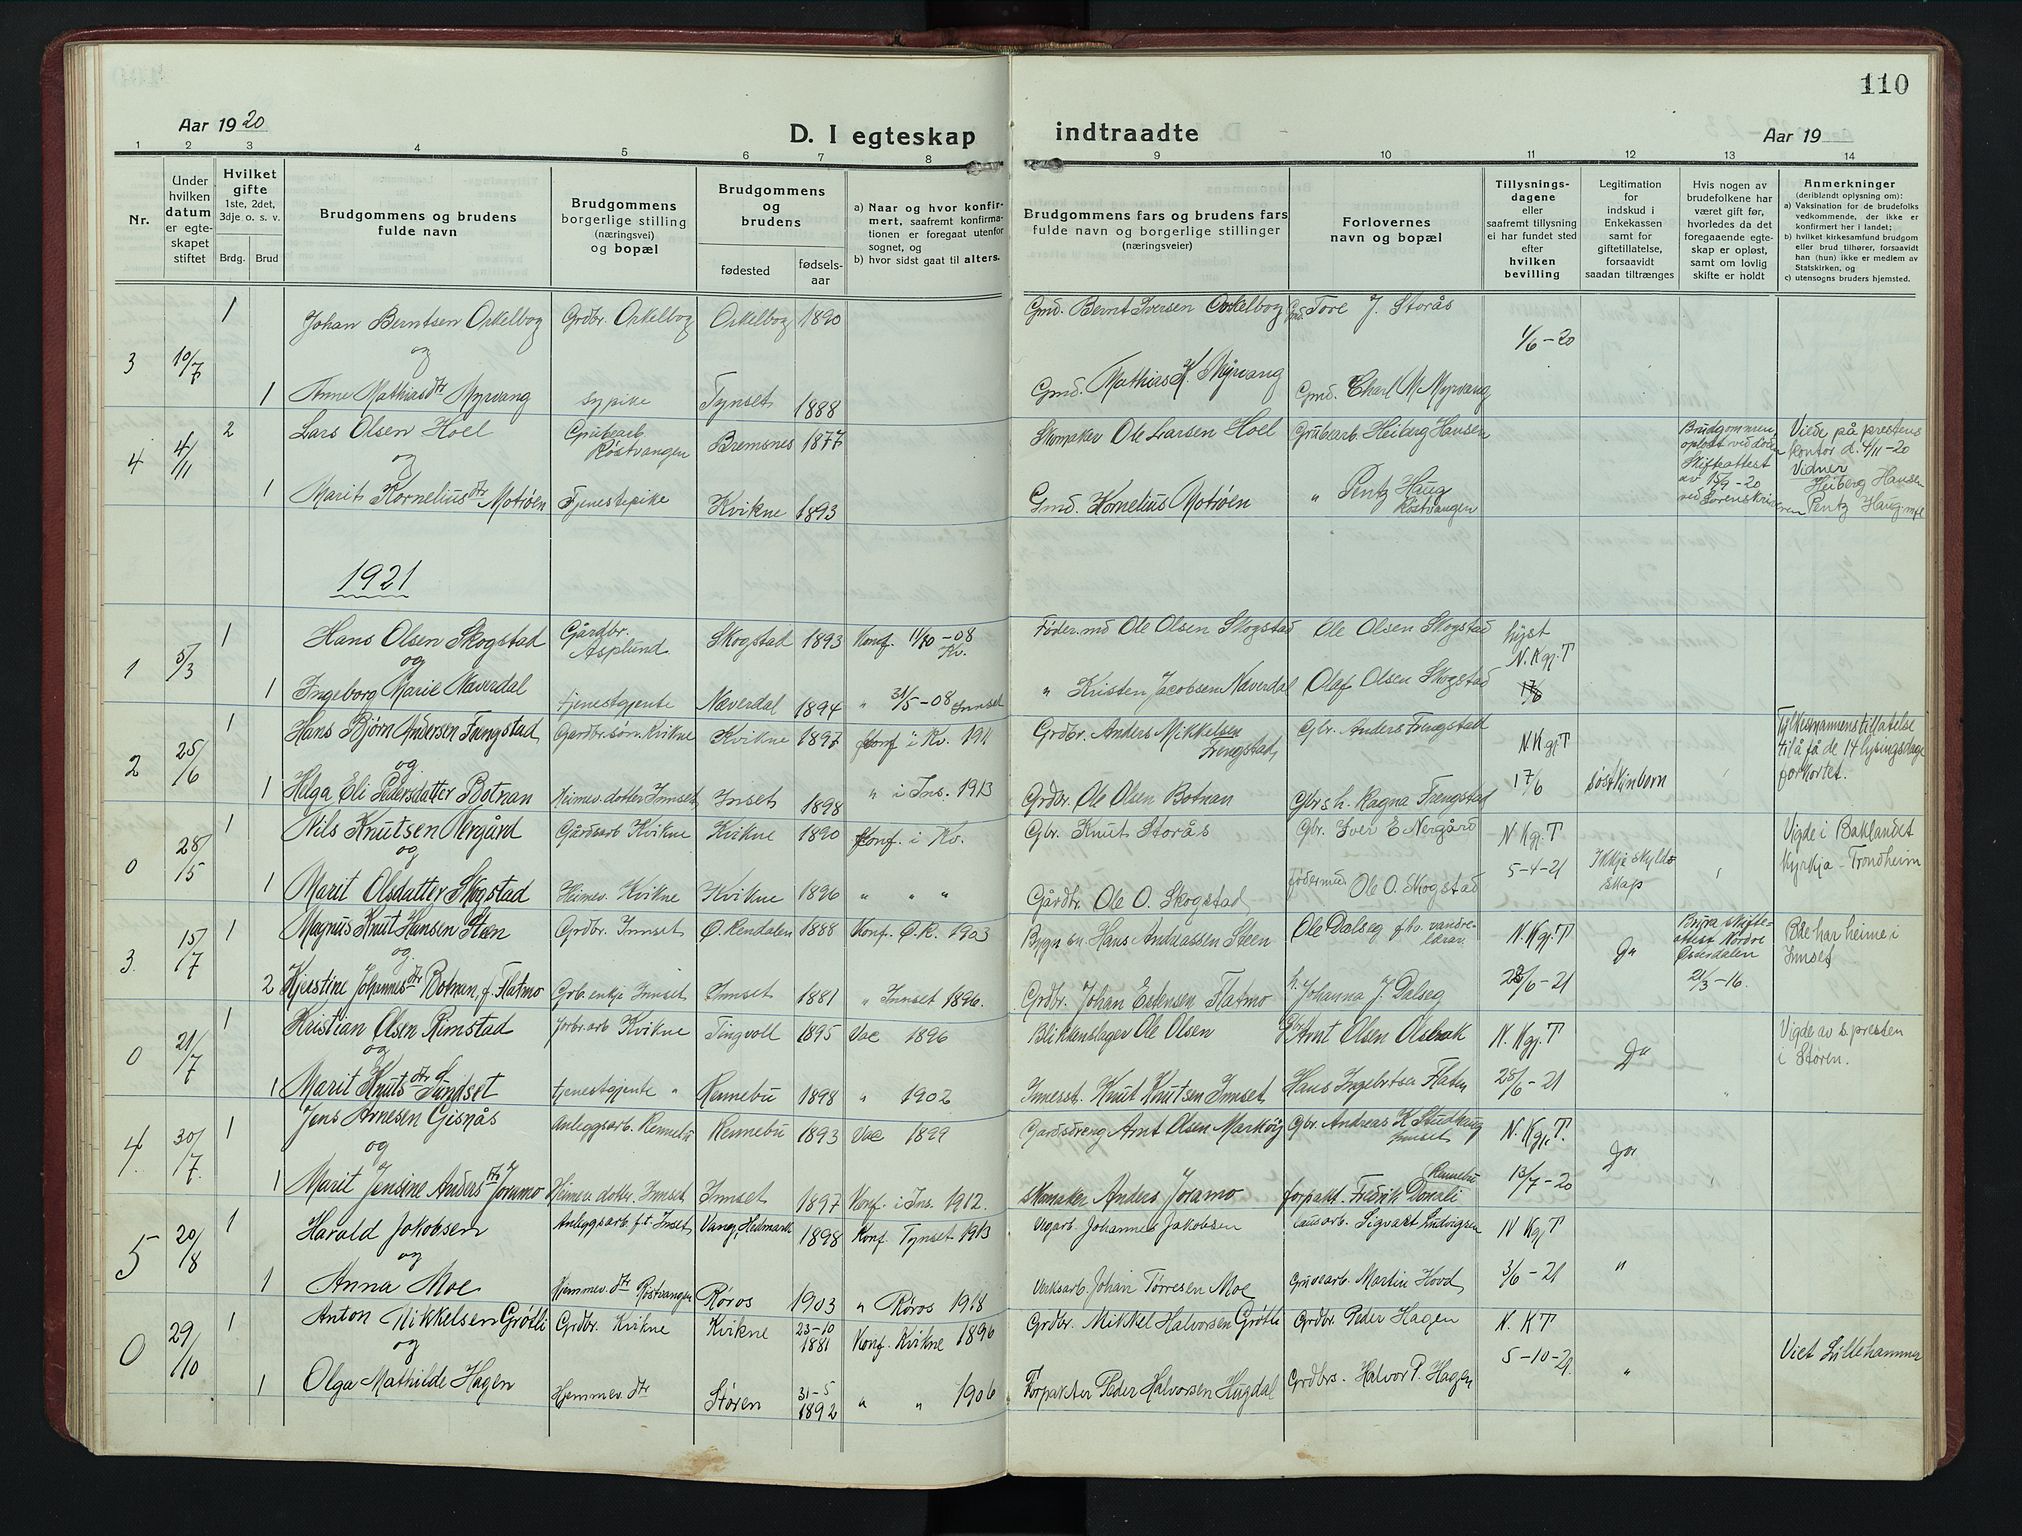 110
Aar 1920
D. I egteskap indtraadte
Aar 19
1 2 3 4 5 6 7 8 9 10 11 12 13 14
Nr.
Under hvilken datum er egteskapet stiftet
Hvilket gifte 1ste, 2det, 3dje o. s. v.
Brdg. Brud
Brudgommens og brudens fulde navn
Brudgommens borgerlige stilling (næringsvei) og bopæl
Brudgommens og brudens
fødested fødselsaar
a) Naar og hvor konfirmert, saafremt konfirmationen er foregaat utenfor sognet, og
b) hvor sidst gaat til alters.
Brudgommens fars og brudens fars fulde navn og borgerlige stillinger (næringsveier)
Forlovernes navn og bopæl
Tillysningsdagene eller saafremt tillysning ei har fundet sted efter hvilken bevilling
Legitimation for indskud i Enkekassen samt for giftetillatelse, forsaavidt saadan tiltrænges
Hvis nogen av brudefolkene har været gift før, hvorledes da det foregaaende egteskap er opløst, samt om lovlig skifte er holdt
Anmerkninger (deriblandt oplysning om):
a) Vaksination for de brudefolks vedkommende, der ikke er konfirmert her i landet;
b) hvilket kirkesamfund brudgom eller brud tilhører, forsaavidt han (hun) ikke er medlem av Statskirken, og
c) utensogns bruders hjemsted.
3 10/7 1 Johan Berntsen Orkelbog Grdbr. Orkelbog Orkelbog 1890 Gmd. Bernt Iversen Orkelbog Gmd. Tore J. Storås 1/6-20
og
1 Anne Mathiasdtr Myrvang sypike Tynset 1888 Gmd. Mathias K. Myrvang Gmd. Charl M. Myrvang
4 4/11 2 Lars Olsen Hoel Grubearb. Røstvangen Bremsnes 1877 Skomaker Ole Larsen Hoel Grubearb. Heiberg Hansen
og
1 Marit Korneliusdtr Motrøen Tjenestepike Kvikne 1893 Gmd. Kornelius Motrøen " Pentz Haug Røstvangen
Brudgommen opløst ved død Skifteattest av 15/9-20 ved Sorenskriveren
Viede på prestens kontor d. 4/11-20 Vidner Heiberg Hansen Pentz Haug
1921
1 5/3 1 Hans Olsen Skogstad Gårdbr. Asplund Skogstad 1893 Konf. 11/10-08 Kv. Føder.md Ole Olsen Skogstad Ole Olsen Skogstad lyst N. Kgj. T
og
1 Ingeborg Marie Næverdal tjenestgjente Næverdal 1894 " 31/5-08 Innset " Kristen Jacobsen Næverdal Olaf Olsen Skogstad
2 25/6 1 Hans Bjørn Andersen Frengstad Gardbr.søn. Kvikne Kvikne 1897 Konf i Kv. 1911 Grdbr. Anders Mikkelsen Frengstad Gbr. Anders Frengstad N Kgj T
og
1 Helga Eli Pedersdatter Botnan Heimev. dotter Innset Inset 1898 " i Ins. 1913 Grdbr. Ole Olsen Botnan Gbrs h. Ragna Frengstad 17/6 Søskjenborn
Fylkesmannens tillatelse til å få de 14 lysingsdage forkortet.
0 28/5 1 Nils Knutsen Nergård Gårdsarb Kvikne Kvikne 1890 Konf. i Kv. Gbr. Knut Storås Gbr. Iver E Nergård N Kgj. T
og
1 Marit Olsdatter Skogstad Heimev. Kvikne Kvikne 1896 " " " Gårdbr. Ole O. Skogstad, födermd Ole O. Skogstad 5-4-21 Ikkje skyldskap
Vigde i Baklandet Kyrkja - Trondheim
3. 15/7 1 Magnus Knut Hansen Steen Grdbr. Innset Ø. Rendalen 1888 Konf. Ø.R. 1903 Hans Andreassen Steen Ole Dalseg f.hv. vandrelærar. N. Kgj. T
og
2 Kjerstine Johannesdtr Botnan, f. Flatmo Grb. enkje Innset Innset 1881 " Innset 1896. Grdbr. Johan Estensen Flatmo h. Johanna J. Dalseg 28/6-21 Do
Brura skifteattest Nordre Østerdalen 21/3-16.
Bde har heime i Innset
0 21/7 1 Kristian Olsen Rimstad Jorbr.arb Kvikne Tingvoll 1895 Vac 1896 Blikkenslager Ole Olsen Gbr Arnt Olsen Olsbak N. Kgj. T
og
1 Marit Knutsdtr Sundset tjenestgjente " Rennebu 1898 " 1902 Innesst. Knut Knutsen Innset Hans Ingebrtsen Flaten 28/6-21 Do
Vigde av s.presten i Støren.
4. 30/7 1 Jens Arnesen Gisnås Anleggsarb. Rennebu Rennebu 1893 Vac 1899 Gardsdreng Arnt Olsen Markøig Gbr Andreas K Innset N. Kgj. T.
og
1 Marit Jensine Andersdtr Joramo Heimev. dottr. Innset Innset 1897 Konf. i Ins. 1912. skomaker Anders Joramo forpakt. Fredrik Donali Rennebu 13/7-20 Do
5 20/8 1 Harald Jakobsen Anleggsarb. f.t. Inset Vang, Hedmark 1898 Konf. Tynset 1913 Vegarb. Johannes Jakobsen Sigvart Ludvigsen N Kgj T
og
1 Anna Moe Hjemmev. dtr Røstvangen Røros 1903 " Røros 1918 Verksarb. Johan Torresen Moe Gruvearb. Martin Hovd 3/6-21 "
0 29/10 1 Anton Mikkelsen Grøtli Grdbr. Kvikne Kvikne 23-10 1881 Konf. Kvikne 1896 Grdbr. Mikkel Halvorsen Grøtli Grdbr Peder Hagen N. K T
og
1 Olga Mathilde Hagen Hjemmev. dtr Støren 31-5 1892 " " 1906 Forpakter Peder Halvorsen Hugdal Grdbrs. Halvor P. Hagen 5-10-21. "
Viet Lillehammer